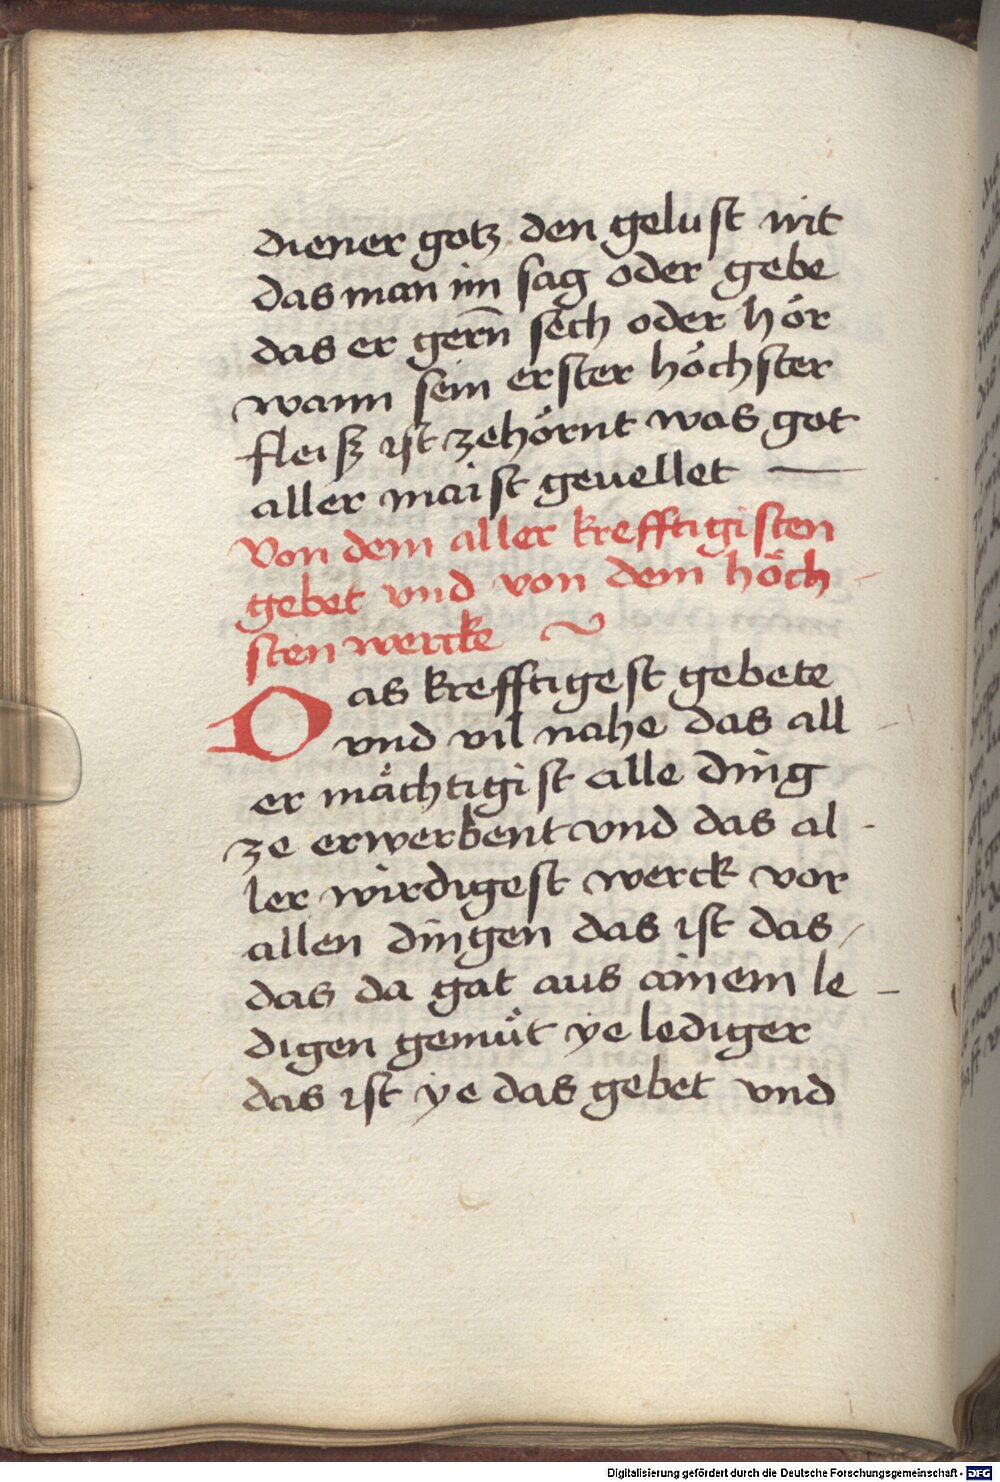 diener gotz den gelust nit
das man im sag oder gebe
das er gern̄ sech oder hör
wann sein erster höchster
fleisz ist zehörnt was got
aller maist geuellet —
Von dem aller krefftigisten
gebet vnd von dem höch
sten wercke ~
Das krefftigest gebete
vnd vil nahe das all
er mächtigist alle ding
ze erwerbent vnd das al -
ler wirdigest werck vor
allen dingen das ist das /
das da gat aus ainem le -
digen gemüt ye lediger
das ist ye das gebet vnd
Digitalisierung gefördert durch die Deutsche Forschungsgemeinschaft - DFG